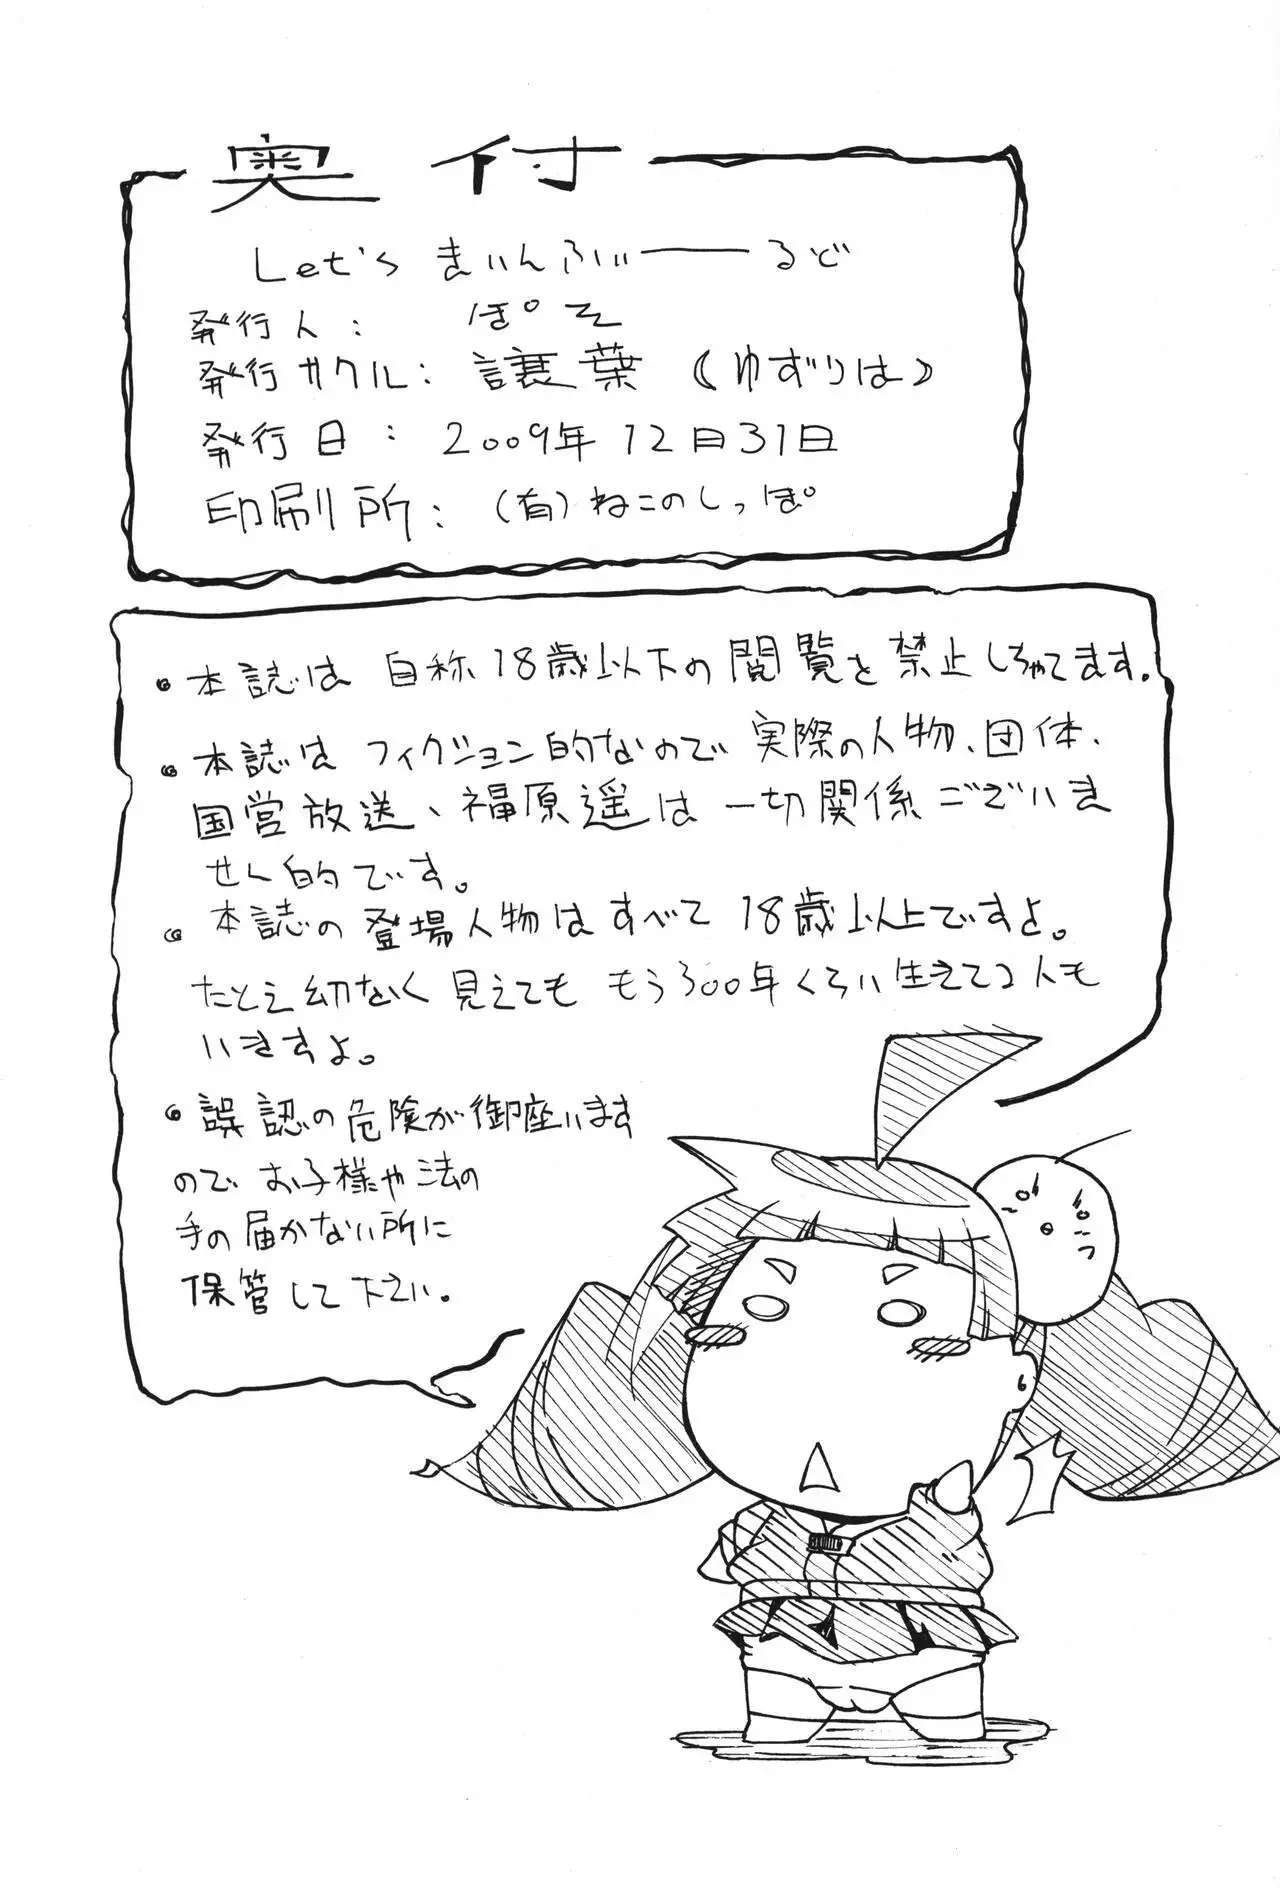 奥付
Let's きぃんふぃーるど
発行人: ぽそ
発行サクル: 譲葉(ゆずりは)
発行日: 2009年12月31日
印刷所: (有)ねこのしっぽ
・本誌は自称18歳以下の閲覧を禁止しちゃてます。
・本誌はフィクション的なので実際の人物、団体、
国営放送、福原遥は一切関係ございま
せん的です。
・本誌の登場人物はすべて18歳以上ですよ。
たとえ幼なく見えてももう300年くらい生きてて2人も
いますよ。
・誤認の危険が御座います
のでお子様や法の
手の届かない所に
保管して下さい。